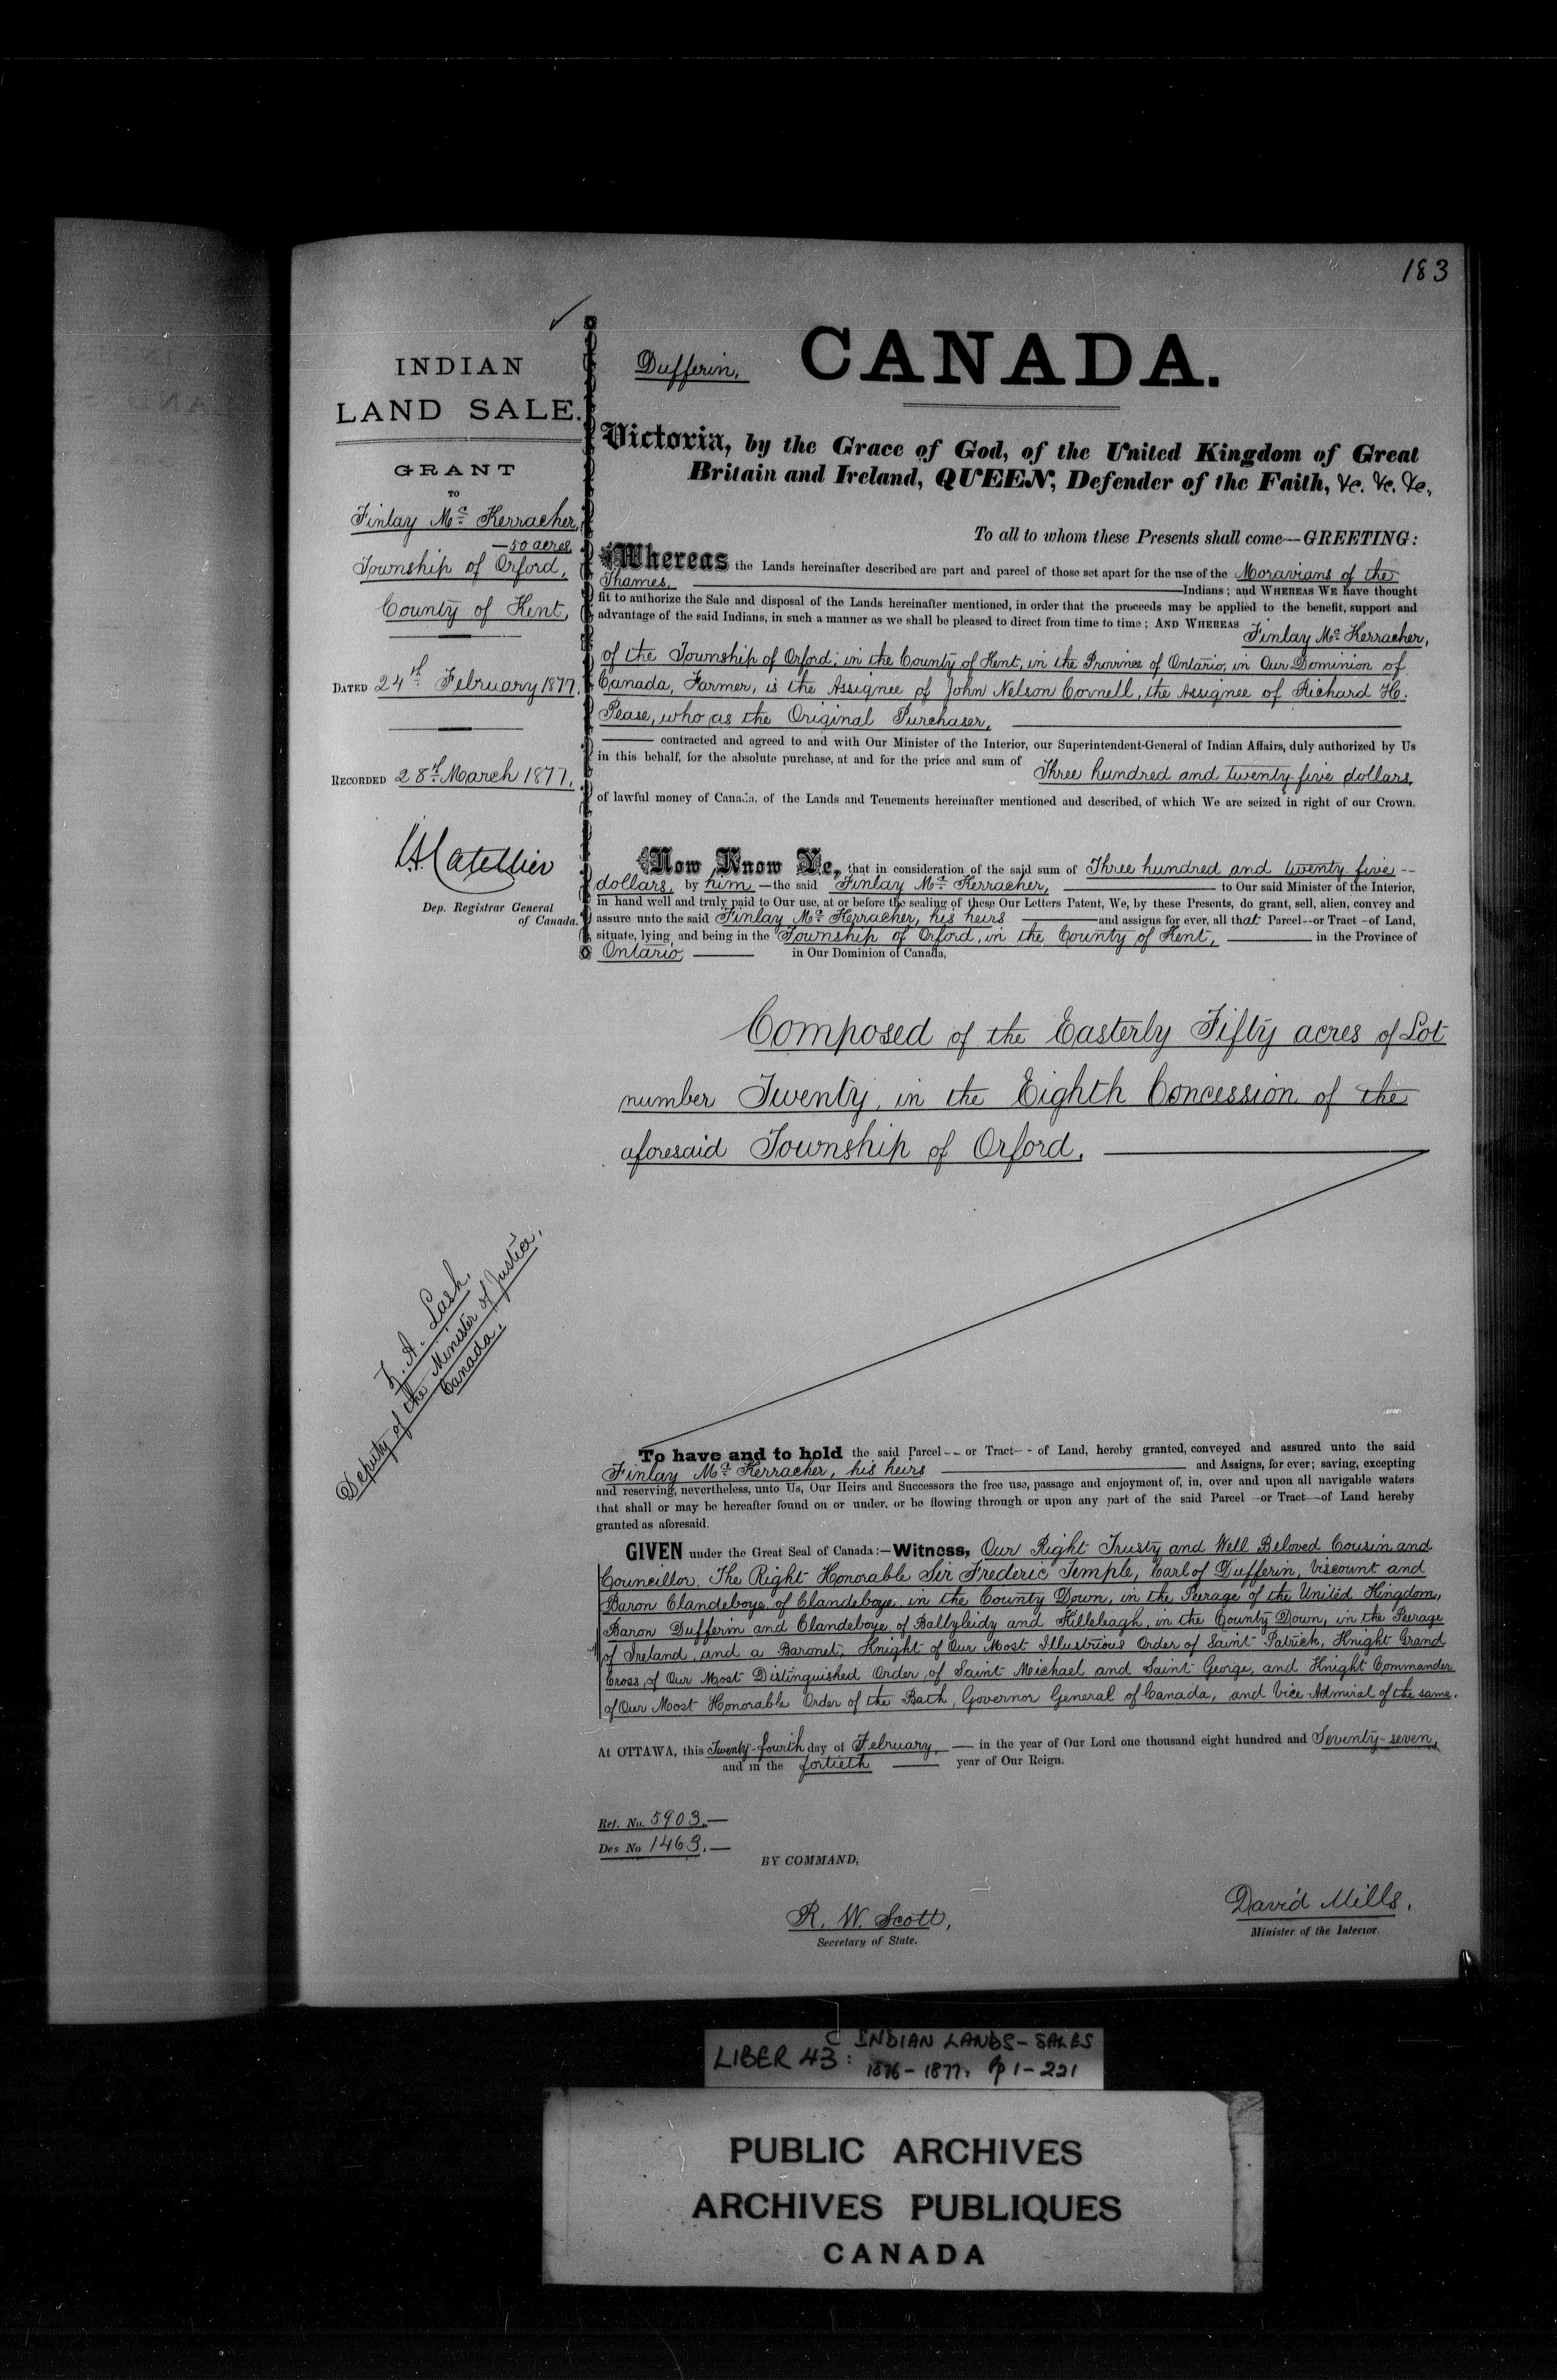 183
INDIAN
LAND SALE.
GRANT
TO
Finlay Mc Kerracher,
— 50 acres
Township of Orford,
County of Kent,
DATED 24th February 1877.
RECORDED 28th March 1877,
Dep. Registrar General
of Canada.
Z. A. Lash,
Deputy of the Minister of Justice,
Canada.
Dufferin,
CANADA.
Victoria, by the Grace of God, of the United Kingdom of Great
Britain and Ireland, QUEEN, Defender of the Faith, &c. &c. &c.
To all to whom these Presents shall come—GREETING:
Whereas the Lands hereinafter described are part and parcel of those set apart for the use of the Moravians of the
Thames, Indians; and WHEREAS WE have thought
fit to authorize the Sale and disposal of the Lands hereinafter mentioned, in order that the proceeds may be applied to the benefit, support and
advantage of the said Indians, in such a manner as we shall be pleased to direct from time to time; AND WHEREAS Finlay Mc Kerracher,
of the Township of Orford, in the County of Kent, in the Province of Ontario, in Our Dominion of
Canada, Farmer, is the Assignee of John Nelson Cornell, the Assignee of Richard H.
Pease, who as the Original Purchaser,
contracted and agreed to and with Our Minister of the Interior, our Superintendent-General of Indian Affairs, duly authorized by Us
in this behalf, for the absolute purchase, at and for the price and sum of Three hundred and twenty five dollars,
of lawful money of Canada, of the Lands and Tenements hereinafter mentioned and described, of which We are seized in right of our Crown.
Now Know Ye, that in consideration of the said sum of Three hundred and twenty five --
dollars, by him — the said Finlay Mc Kerracher, to Our said Minister of the Interior,
in hand well and truly paid to Our use, at or before the sealing of these Our Letters Patent, We, by these Presents, do grant, sell, alien, convey and
assure unto the said Finlay Mc Kerracher, his heirs and assigns for ever, all that Parcel--or Tract -of Land,
situate, lying, and being in the Township of Orford, in the County of Kent, in the Province of
Ontario in Our Dominion of Canada,
Composed of the Easterly Fifty acres of Lot
number Twenty, in the Eighth Concession of the
aforesaid Township of Orford.
To have and to hold the said Parcel -- or Tract- - of Land, hereby granted, conveyed and assured unto the said
Finlay Mc Kerracher, his heirs and Assigns, for ever; saving, excepting
and reserving, nevertheless, unto Us, Our Heirs and Successors the free use, passage and enjoyment of, in, over and upon all navigable waters
that shall or may be hereafter found on or under, or be flowing through or upon any part of the said Parcel —or Tract—of Land hereby
granted as aforesaid.
GIVEN under the Great Seal of Canada:—Witness, Our Right Trusty and Well Beloved Cousin and
Councillor, The Right Honorable Sir Frederic Temple, Earl of Dufferin, Viscount and
Baron Clandeboye of Clandeboye, in the County Down, in the Peerage of the United Kingdom,
Baron Dufferin and Clandeboye of Ballyleidy and Killeleagh, in the County Down, in the Peerage
of Ireland, and a Baronet, Knight of Our Most Illustrious Order of Saint Patrick, Knight Grand
Cross of Our Most Distinguished Order of Saint Michael and Saint George, and Knight Commander
of Our Most Honorable Order of the Bath, Governor General of Canada, and Vice Admiral of the same.
At OTTAWA, this Twenty-fourth day of February, — in the year of Our Lord one thousand eight hundred and Seventy-seven,
and in the fortieth year of Our Reign.
Ref. No. 5903.—
Des No 1463.—
BY COMMAND,
R. W. Scott,
Secretary of State.
David Mills,
Minister of the Interior.
LIBER 43 : C INDIAN LANDS - SALES
1876 - 1877. Pp 1 - 221
PUBLIC ARCHIVES
ARCHIVES PUBLIQUES
CANADA